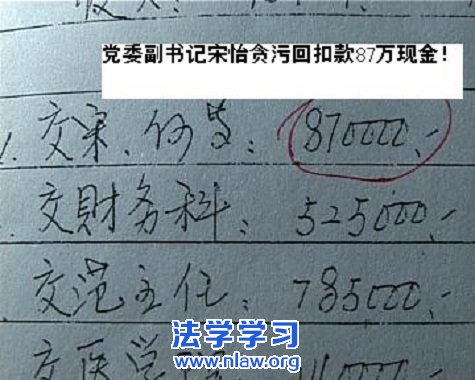 党委副书记宋怡贪污回扣款87万现金！
交宋、何等：870000.-
交财务科：525000.-
交范主任：785000.-
法学学习
www.nlaw.org
交医学